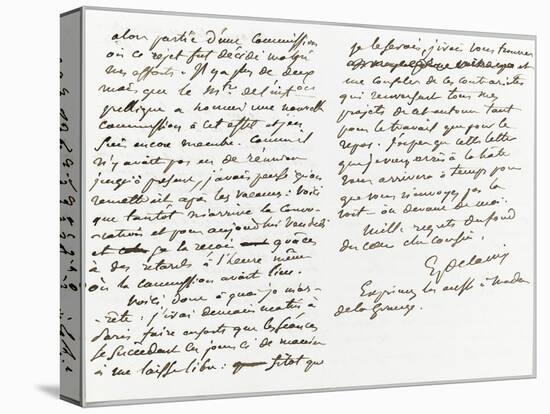 alors partie d'une commission
où ce rejet fut décidé malgré
mes efforts. Il y a plus de deux
mois que le Mtre de l'instron
publique a nommé une nouvelle
commission à cet effet et j'en
suis encore membre. Comme il
n'y avait pas eu de réunion
jusqu'à présent, j'avais pensé qu'on
remettrait après les vacances : voici
que tantôt m'arrive la convo-
cation et pour aujourd'hui vendredi
et je la reçois grâces
à des retards à l'heure même
où la commission avait lieu.
Voici donc à quoi je m'ar-
rête : j'irai demain matin à
Paris faire ensorte que les séances
se succèdent ces jours ci de manière
à me laisser libre : sitot que
je le serais, j'irai vous trouver
et
me consoler de ces contrariétés
qui renversent tous mes
projets de cet automne tant
pour le travail que pour le
repos. J'espère que cette lettre
que je vous écris à la hâte
vous arrivera à temps pour
que vous n'envoyez pas la
voit- au devant de moi.
Mille regrets du fond
du cœur cher cousin.
EugDelacroix
Exprimez les aussi à Madame
de la Grange.